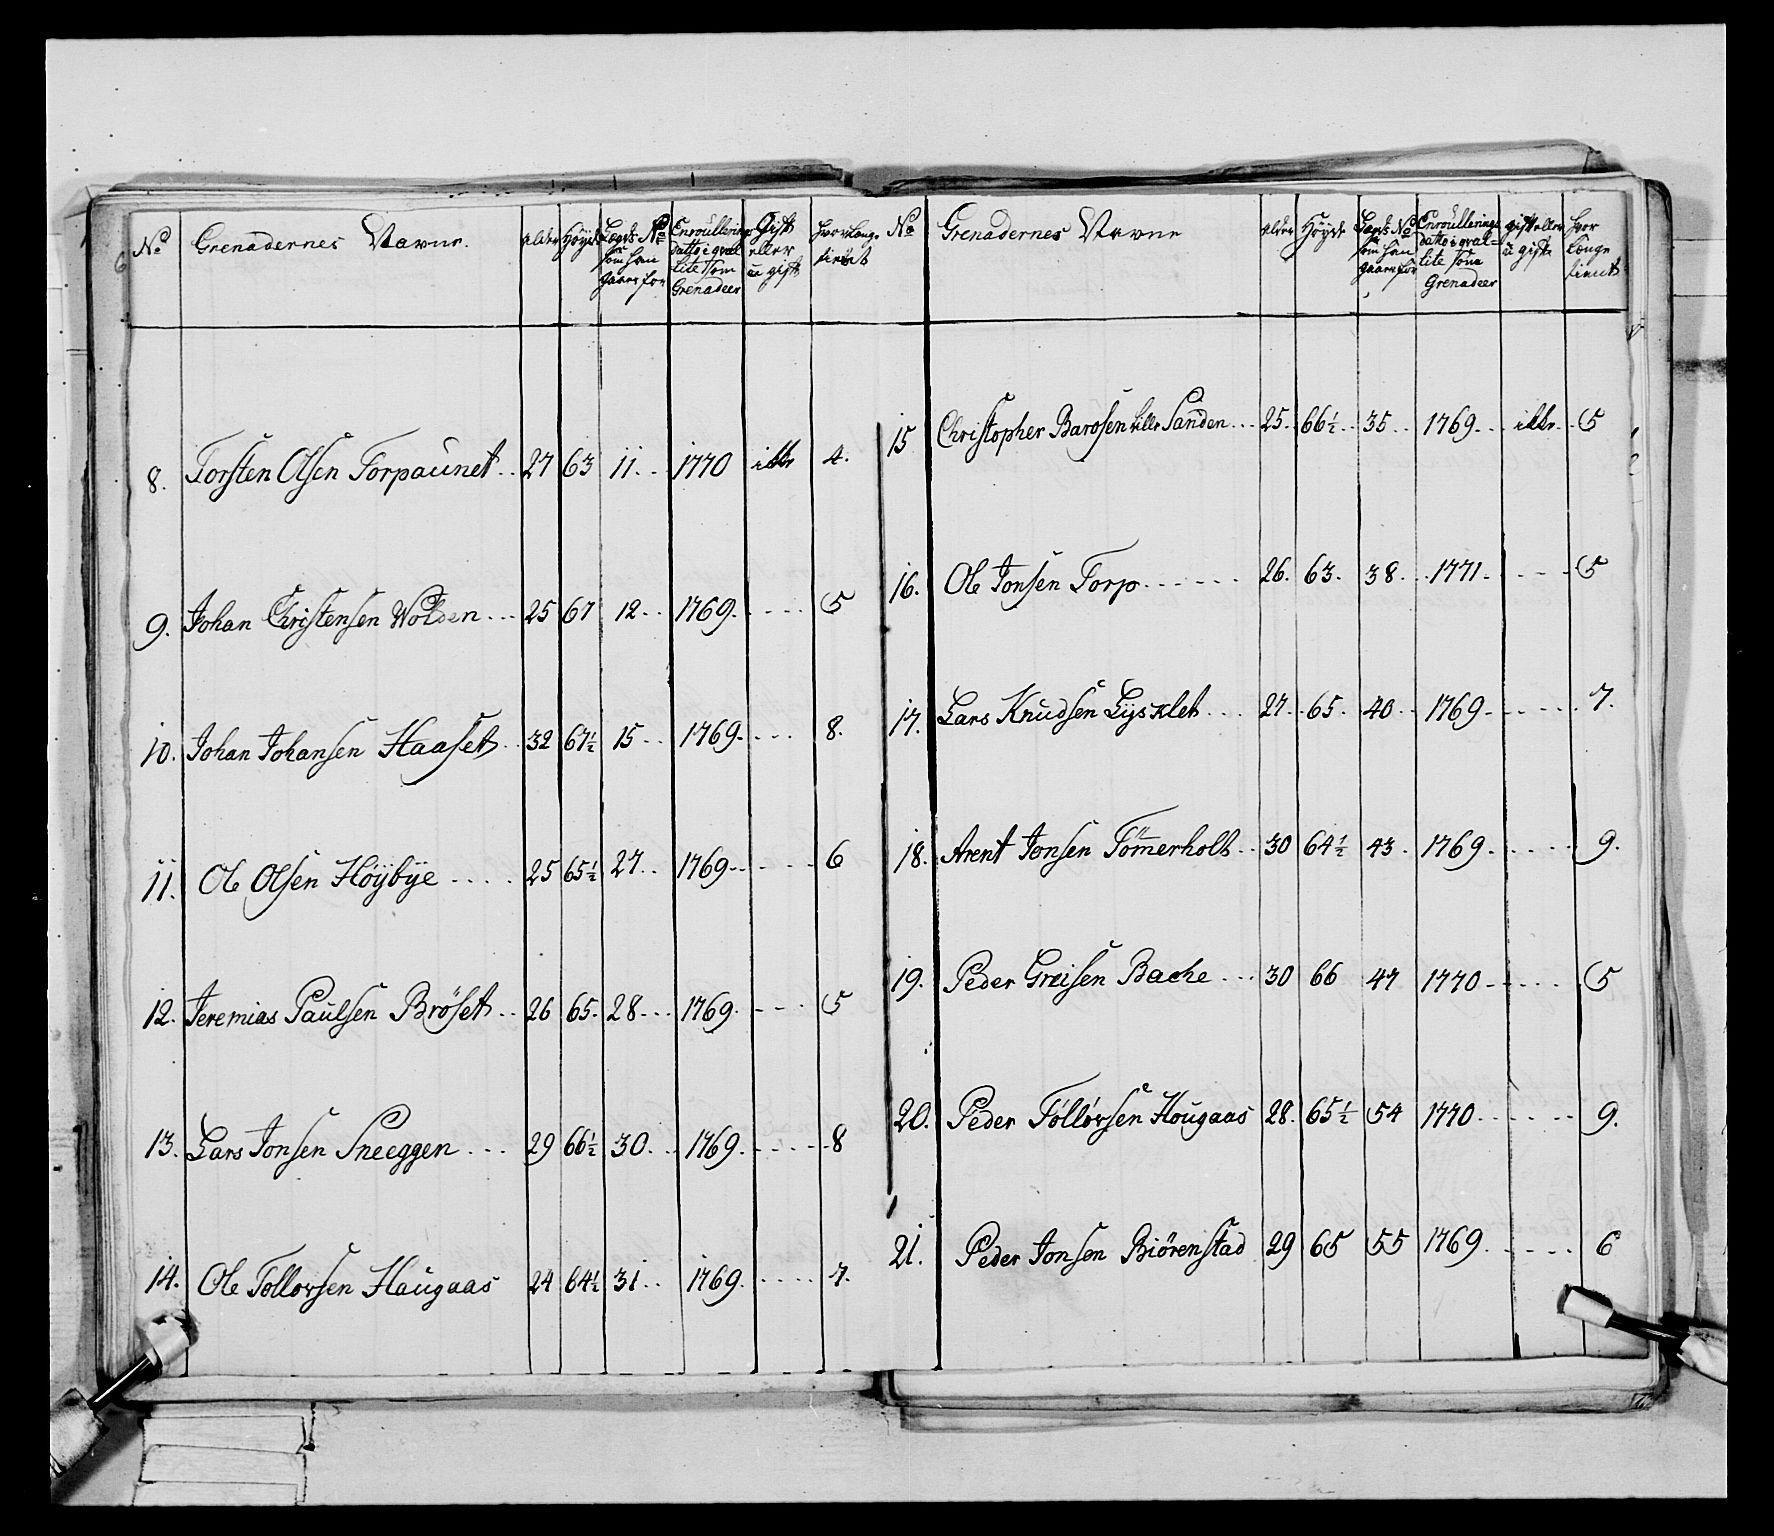 No
Grenadernes Navne.
alder
Höyde
Lægds No
som han
gaaer for
Enroullerings
datto i qvali
tite som
Grenadeer
Gift
eller
u gift
hvorlænge
tient
8. Torsten Olsen Torpaunet .. 27 63 11... 1770 ikke 4.
9. Johan Christensen Wolden ... 25 67 12.. 1769. .... 5
10. Johan Johansen Haaset .. 32 67½ 15.. 1769. .... 8.
11. Ole Olsen Höÿbÿe .... 25 65½ 27.. 1769.. .... 6
12. Jeremias Paulsen Bröset .. 26 65. 28... 1769. ... 5
13. Lars Jonsen Sneeggen ... 29 66½ 30... 1769. ..... 8
14. Ole Tollovsen Haugaas 24 64½ 31.. 1769. .... 7.
No
Grenadernes Navne
alder
Höyde
Lægds No
som han
gaaer for
Enroullerings
datto i qvali=
tite som
Grenadeer
gift eller
u gift
hvor
længe
tient
15 Christopher Barosen lille Sanden ... 25. 66½.. 35.. 1769... ikke.. 5
16. Ole Jonsen Torp ...... 26. 63. 38... 1771. .... 5
17. Lars Knudsen Lysklet ... 27. 65. 40.. 1769. ..... 7.
18. Arent Jonsen Tömerholt .. 30 64½ 43. 1769. ..... 9.
19. Peder Greisen Bache ... 30 66 47 1770 ..... 5
20. Peder Föllövsen Hougaas 28. 65½ 54 1770 ...... 9.
21. Peder Jonsen Biörenstad 29 65 55 1769. .... 6